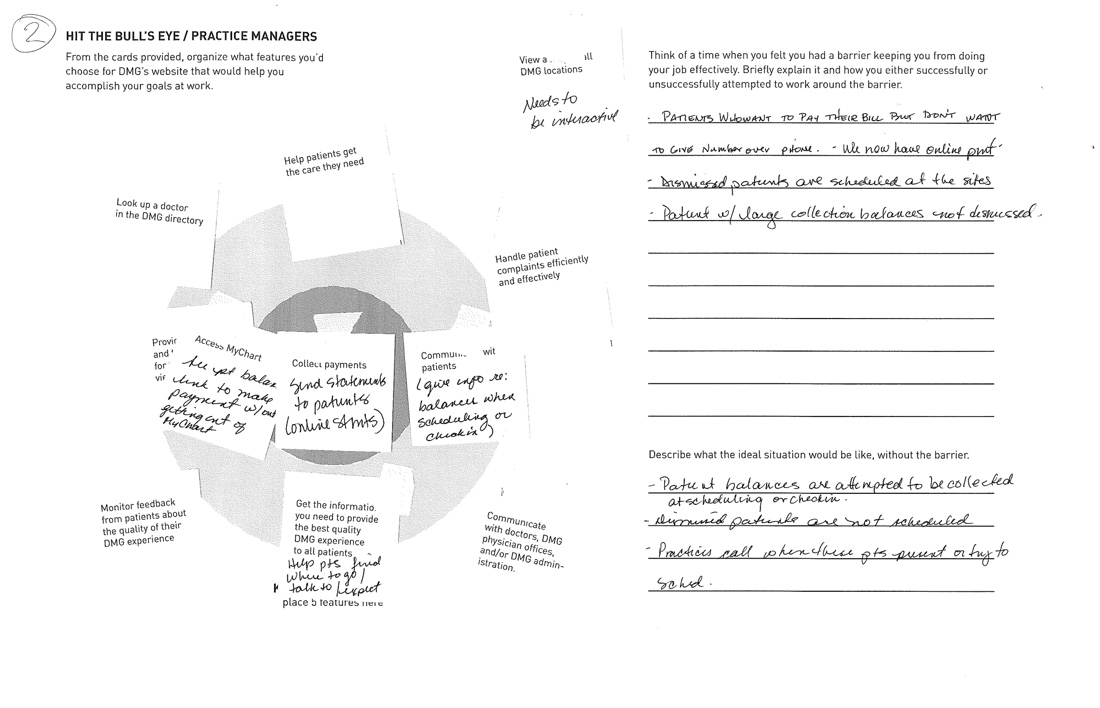 2
HIT THE BULL'S EYE / PRACTICE MANAGERS
From the cards provided, organize what features you'd
choose for DMG's website that would help you
accomplish your goals at work.
View a ll
DMG locations
Needs to
be interactive
Help patients get
the care they need
Look up a doctor
in the DMG directory
Handle patient
complaints efficiently
and effectively
Provi
and
for
vi
Access MyChart
link to make
payment w/out
getting out of
MyChart
Collect payments
Send statements
to patients
(online stmts)
Commu wit
patients
(give info re:
balances when
scheduling or
checkin)
Monitor feedback
from patients about
the quality of their
DMG experience
Get the informatio
you need to provide
the best quality
DMG experience
to all patients
Help pts find
where to go/
talk to/expect
place 5 features here
Communicate
with doctors, DMG
physician offices,
and/or DMG admin-
istration.
Think of a time when you felt you had a barrier keeping you from doing
your job effectively. Briefly explain it and how you either successfully or
unsuccessfully attempted to work around the barrier.
- PATIENTS WHO WANT TO PAY THEIR BILL BUT DON'T WANT
TO GIVE Number over phone. - We now have online pmt
- Dismissed patients are scheduled at the sites
- Patient w/ large collection balances not dismissed.
Describe what the ideal situation would be like, without the barrier.
- Patient balances are attempted to be collected
at scheduling or checkin.
- Dismissed patients are not scheduled
- Practices call when these pts present or try to
sched.